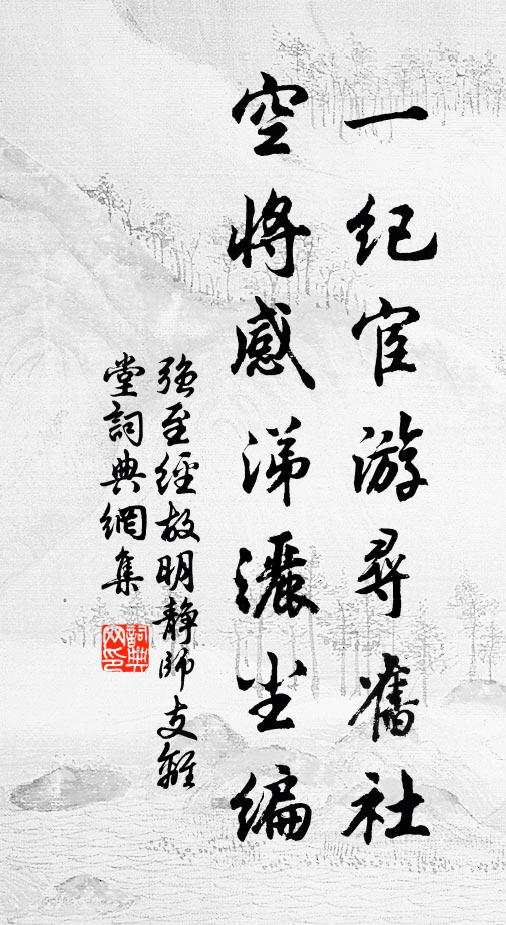 一纪宦游寻旧社
空将感涕洒尘编
强至经故明静师支离
堂词典网集
词典网印